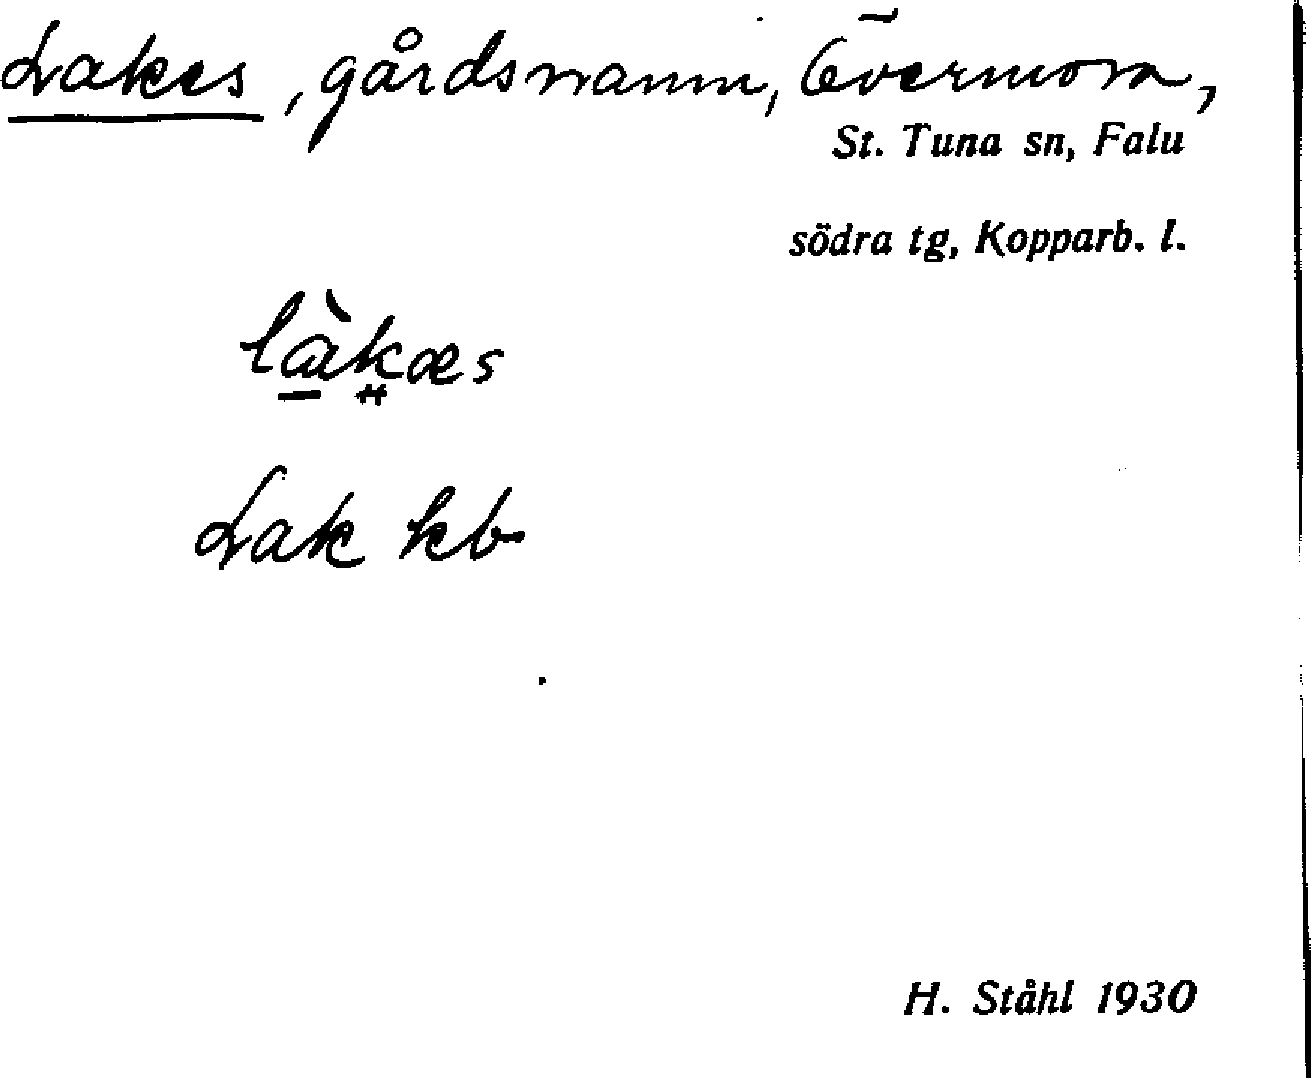 Lakes, gårdsnamn, Övermora,
St. Tuna sn, Falu
södra tg, Kopparb. l.
là̱k̤æs
Lak kb
H. Ståhl 1930